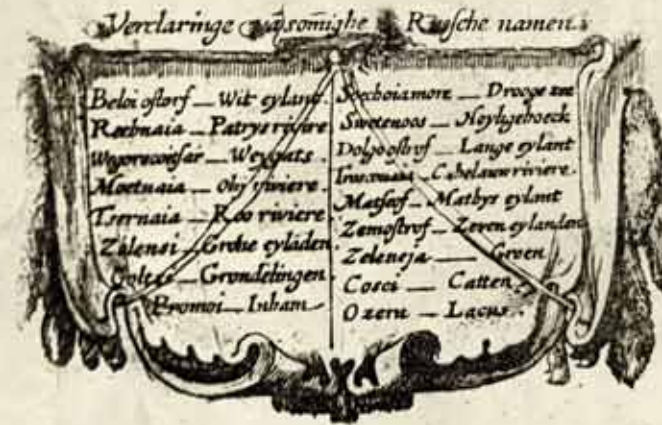 Verclaringe van somighe Rusche namen.
Beloi ostorf — Wit eylant.
Roebnaia — Patrys riviere
Weygats.
Moetnaia — Oly riviere.
Tsernaia — Roo riviere.
Zalensi — Grohe eyläden.
Goltzi — Grondelingen
Promoi — Inham
Soechoiamore — Drooge zee
Swetenoos — Heyligehoeck
Dolgoostrof — Lange eylant
Cabelauw riviere.
Matseof — Mathys eylant
Zemostrof — Zeven eylanden
Zeleneja — Groen
Cosci — Catten
Ozeru — Lacus.